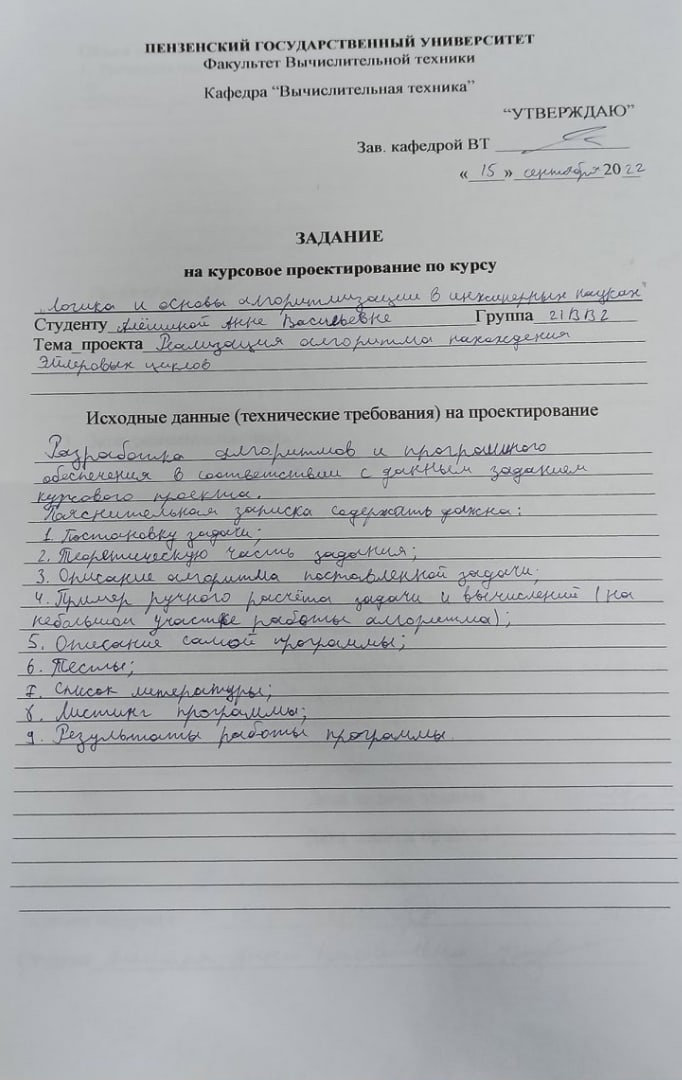 ПЕНЗЕНСКИЙ ГОСУДАРСТВЕННЫЙ УНИВЕРСИТЕТ
Факультет Вычислительной техники
Кафедра “Вычислительная техника”
“УТВЕРЖДАЮ”
Зав. кафедрой ВТ
«15» сентября 2022
ЗАДАНИЕ
на курсовое проектирование по курсу
„Логика и основы алгоритмизации в инженерных науках"
Студенту Алёшиной Анне Васильевне Группа 21ВВ2
Тема проекта Реализация алгоритма нахождения
Эйлеровых циклов
Исходные данные (технические требования) на проектирование
Разработка алгоритмов и программного
обеспечения в соответствии с данным заданием
курсового проекта.
Пояснительная записка содержать должна:
1. Постановку задачи;
2. Теоретическую часть задания;
3. Описание алгоритма поставленной задачи;
4. Пример ручного расчёта задачи и вычислений (на
небольшом участке работы алгоритма);
5. Описание самой программы;
6. Тесты;
7. Список литературы;
8. Листинг программы;
9. Результаты работы программы.